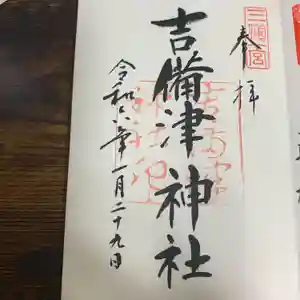 奉拝
吉備津神社
令和六年一月二十九日